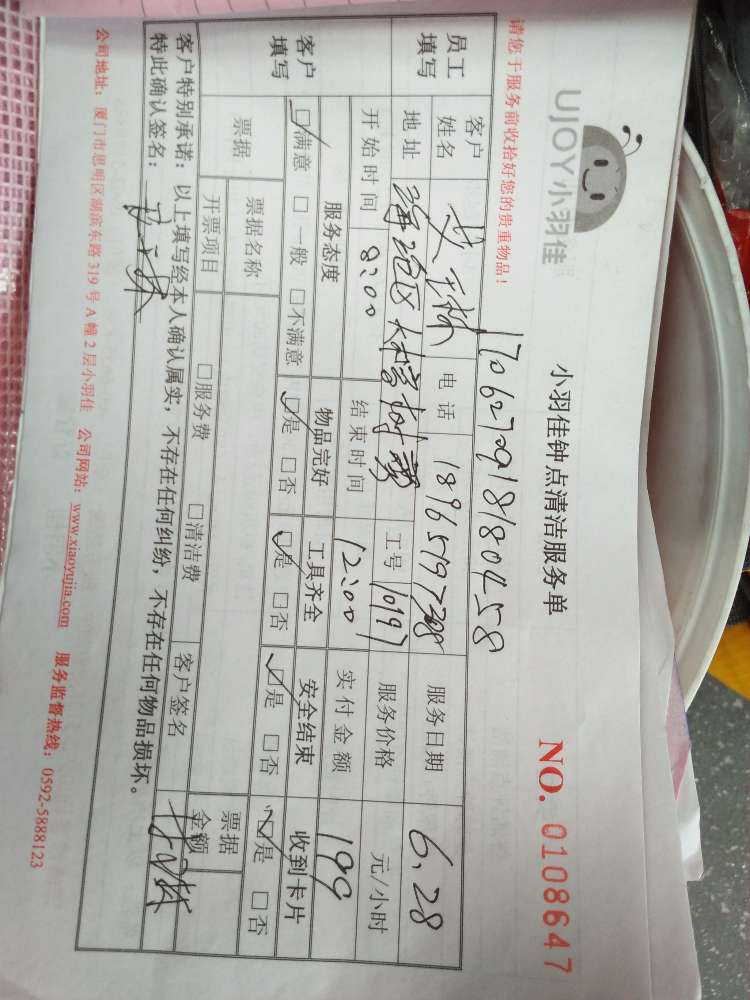 UJOY 小羽佳
小羽佳钟点清洁服务单
NO. 0108647
请您于服务前收拾好您的贵重物品!
员工填写
客户姓名 电话 服务日期 6.28
地址 工号 10197 服务价格 元/小时
开始时间 8:00 结束时间 12:00 实付金额 199
客户填写
服务态度 物品完好 工具齐全 安全结束 收到卡片
☑满意 □一般 □不满意 ☑是 □否 ☑是 □否 ☑是 □否 ☑是 □否
票据 票据名称 □服务费 □清洁费 票据金额
开票项目 客户签名
客户特别承诺:以上填写经本人确认属实,不存在任何纠纷,不存在任何物品损坏。
特此确认签名:
公司地址:厦门市思明区湖滨东路319号A幢2层小羽佳 公司网站:www.xiaoyujia.com 服务监督热线:0592-5888123